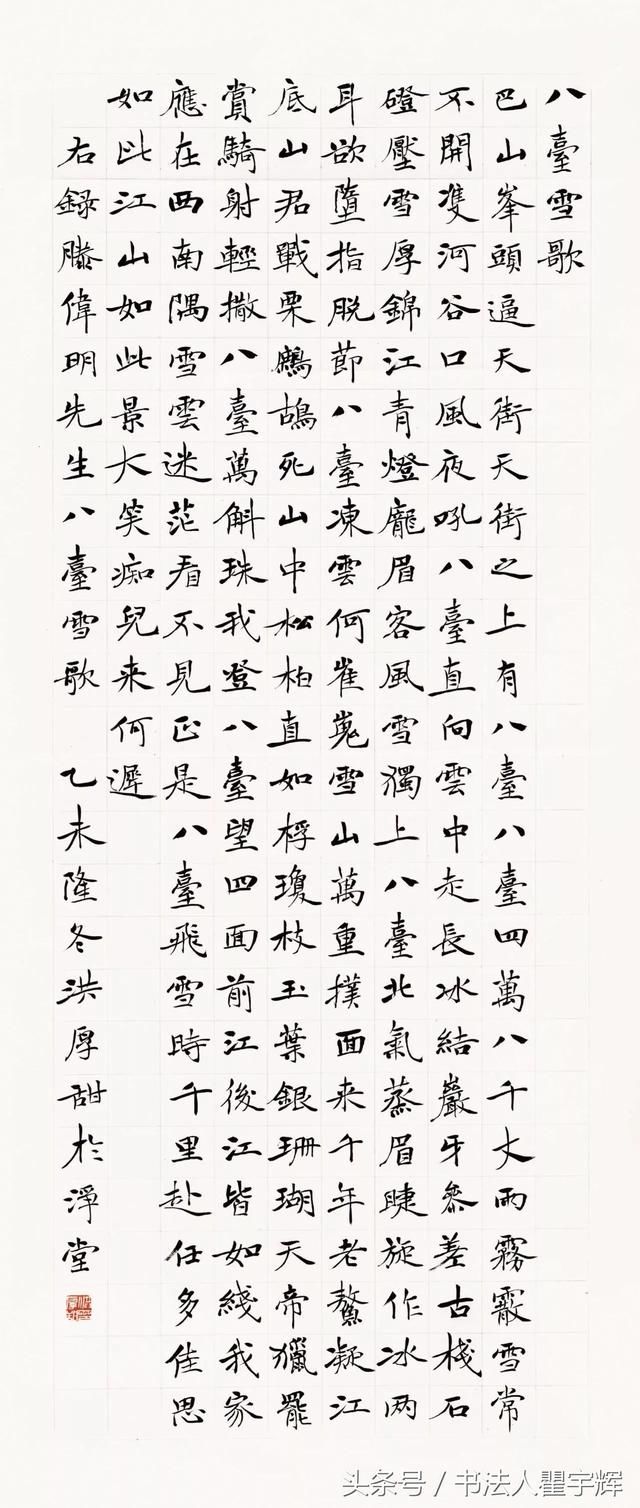 八臺雪歌
巴山峯頭逼天街天街之上有八臺八臺四萬八千丈雨霧霰雪常
不開雙河谷口風夜吼八臺直向雲中走長冰結巖牙參差古棧石
磴壓雪厚錦江青燈龐眉客風雪獨上八臺北氣蒸眉睫旋作冰兩
耳欲墮指脫節八臺凍雲何崔嵬雪山萬重撲面来千年老鰲凝江
底山君戰栗鷓鴣死山中松柏直如桴瓊枝玉葉銀珊瑚天帝獵罷
賞騎射輕撒八臺萬斛珠我登八臺望四面前江後江皆如綫我家
應在西南隅雪雲迷茫看不見正是八臺飛雪時千里赴任多佳思
如此江山如此景大笑痴兒来何遲
右録滕偉明先生八臺雪歌 乙未隆冬洪厚甜於淨堂
头条号/书法人瞿宇辉